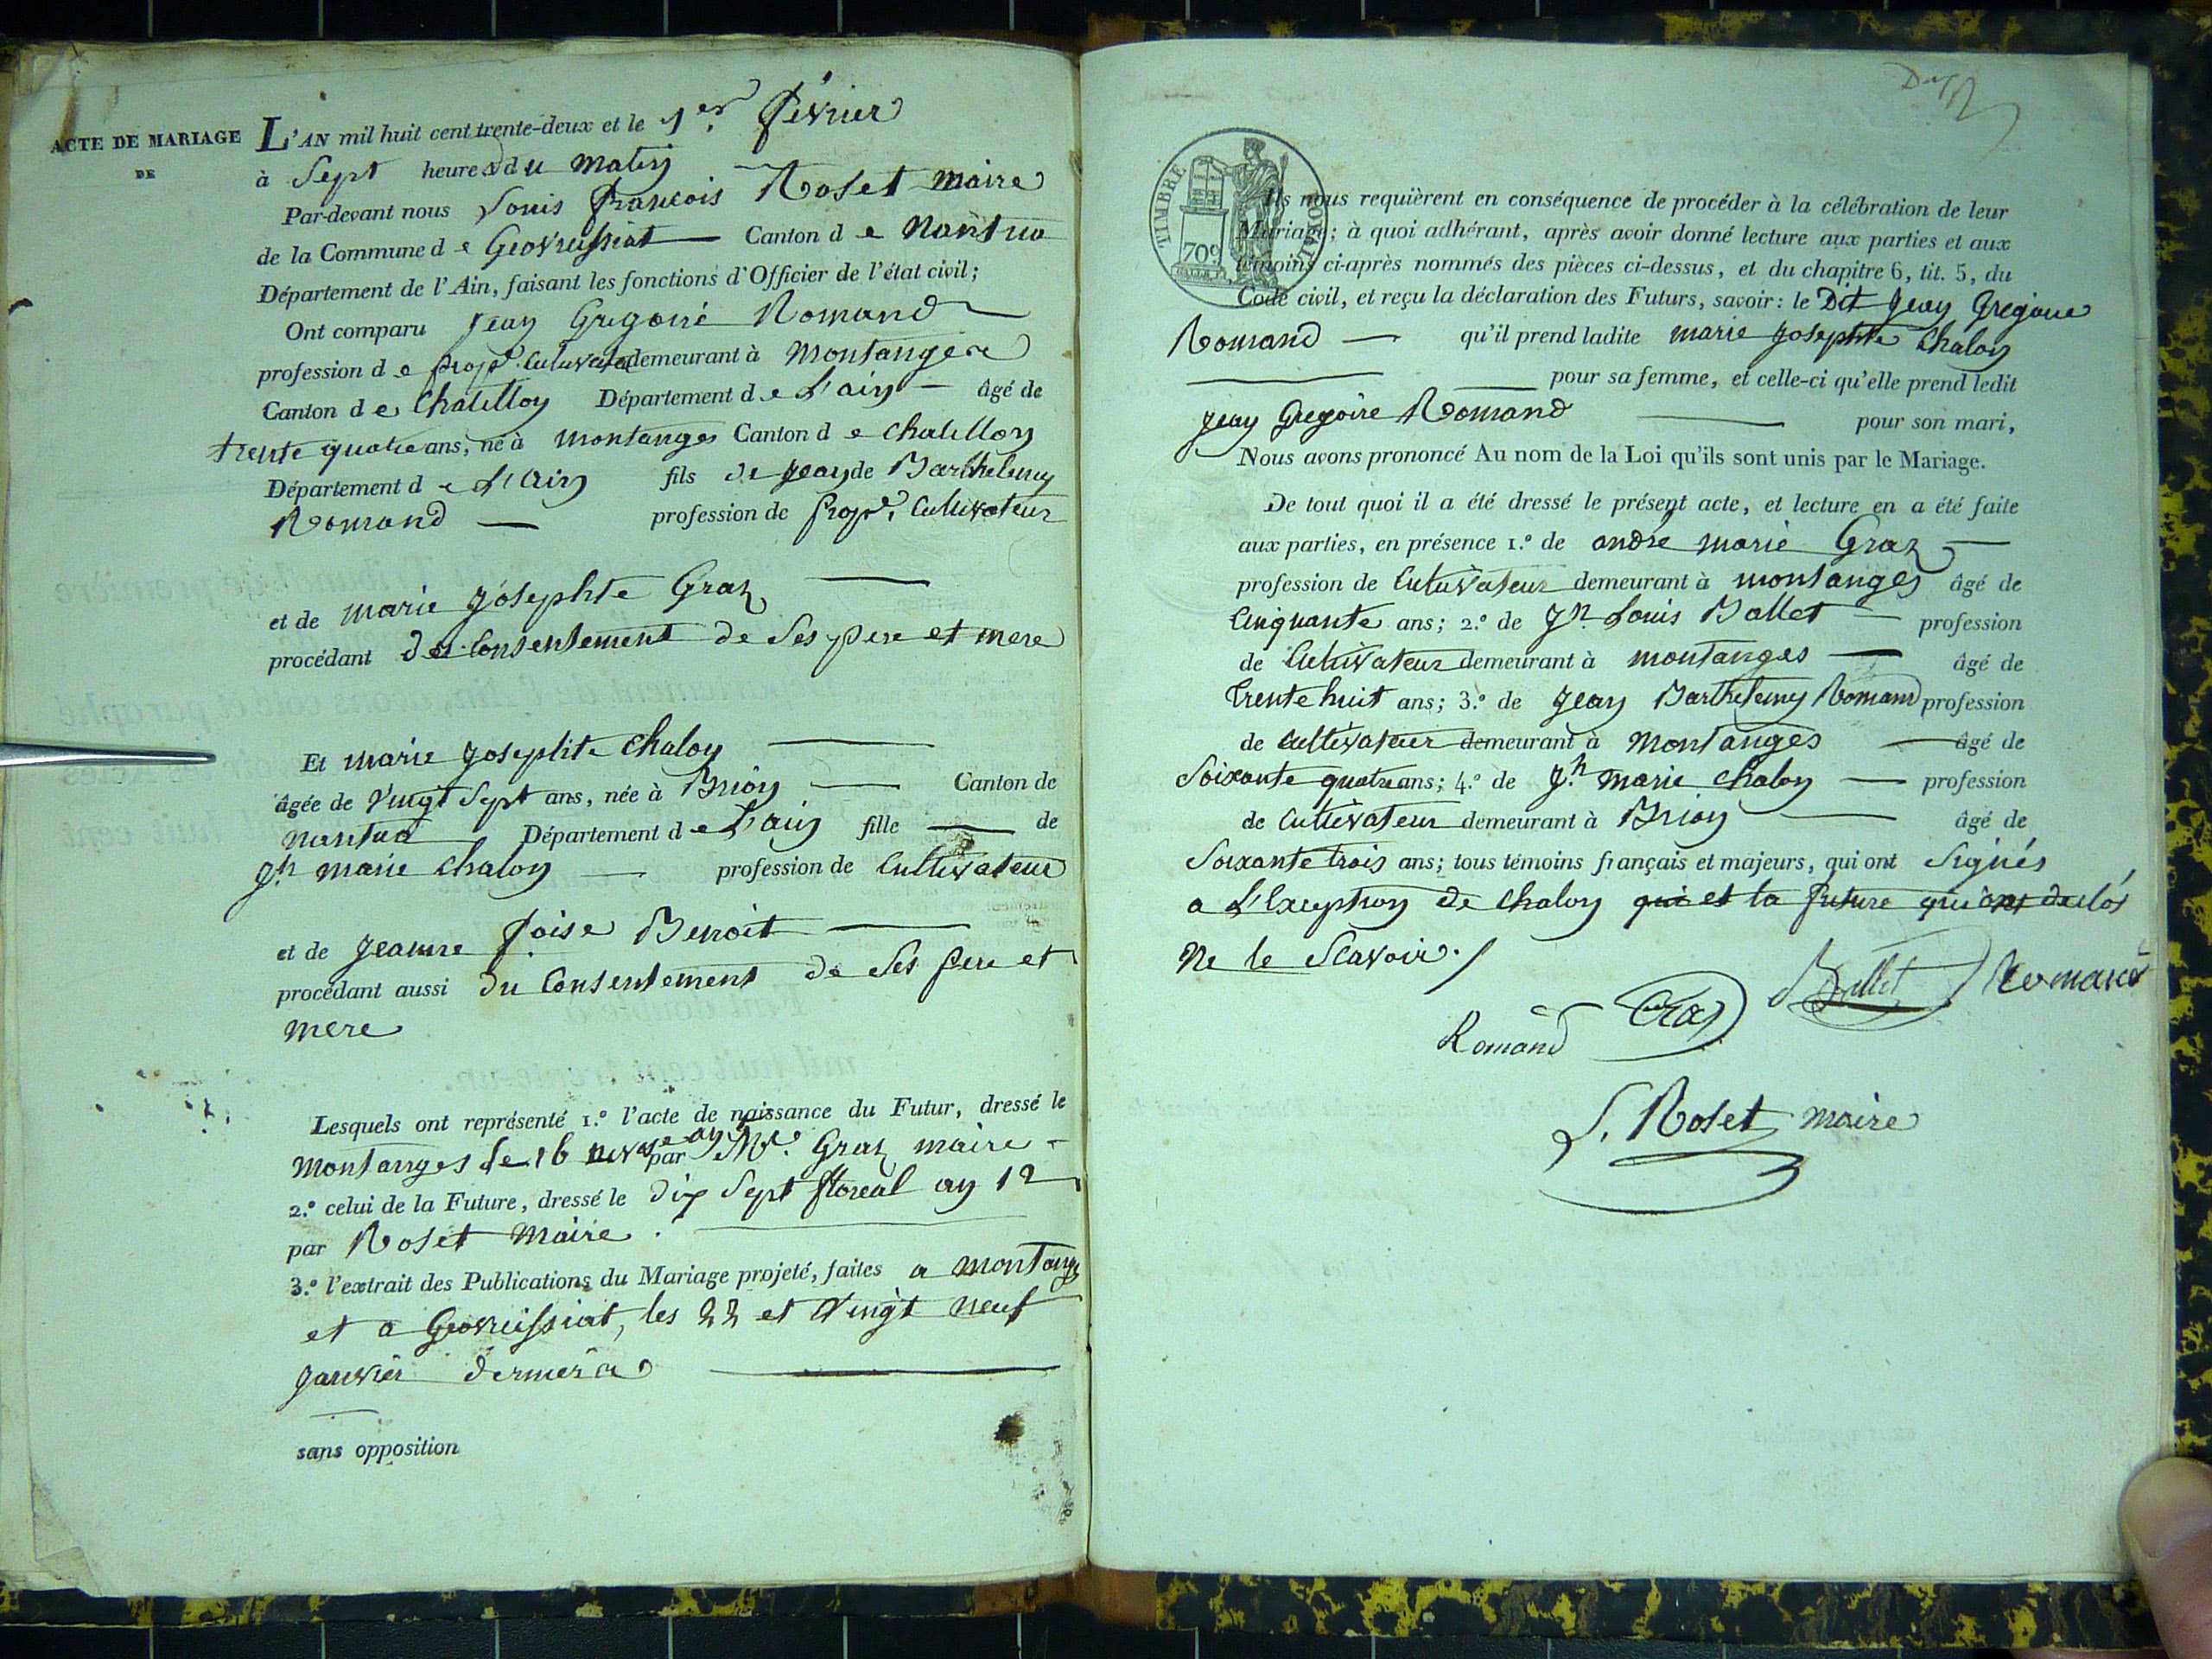 ACTE DE MARIAGE
DE
L'AN mil huit cent trente-deux et le 1er. février
à Sept heures du matin
Par-devant nous Louis françois Roset maire
de la Commune de Geovreissiat Canton de Nantua
Département de l'Ain, faisant les fonctions d'Officier de l'état civil;
Ont comparu Jean Gregoire Romand
profession de prop.e Cultivateur demeurant à Montanges
Canton de Chatillon Département de L'ain âgé de
trente quatre ans, né à montanges Canton de chatillon
Département de L'Ain fils de Jean de Barthelemy
Romand profession de prop.e Cultivateur
et de marie Josephte Graz
procédant du Consentement de Ses pere et mere
Et marie Josephte Chalon
âgée de Vingt Sept ans, née à Brion Canton de
nantua Département de L'ain fille de
Jh marie Chalon profession de Cultivateur
et de Jeanne foise Benoit
procédant aussi du Consentement de Ses pere et
mere
Lesquels ont représenté 1.º l'acte de naissance du Futur, dressé le
montanges le 16 par Graz maire
2.º celui de la Future, dressé le dix Sept floreal an 12
par Roset Maire.
3.º l'extrait des Publications du Mariage projeté, faites a montang
et a Geovreissiat, les 22 et Vingt neuf
Janvier dernier
sans opposition
TIMBRE ROYAL
70c
Ils nous requièrent en conséquence de procéder à la célébration de leur
Mariage; à quoi adhérant, après avoir donné lecture aux parties et aux
témoins ci-après nommés des pièces ci-dessus, et du chapitre 6, tit. 5, du
Code civil, et reçu la déclaration des Futurs, savoir: le Dit Jean Gregoire
Romand qu'il prend ladite marie Josephte Chalon
pour sa femme, et celle-ci qu'elle prend ledit
Jean Gregoire Romand pour son mari,
Nous avons prononcé Au nom de la Loi qu'ils sont unis par le Mariage.
De tout quoi il a été dressé le présent acte, et lecture en a été faite
aux parties, en présence 1.º de andré marie Graz
profession de Cultivateur demeurant à montanges âgé de
Cinquante ans; 2.º de Jn Louis Ballet profession
de Cultivateur demeurant à montanges âgé de
trente huit ans; 3.º de Jean Barthelemy Romand profession
de Cultivateur demeurant à Montanges âgé de
Soixante quatre ans; 4.º de Jh marie Chalon profession
de Cultivateur demeurant à Brion âgé de
Soixante trois ans; tous témoins français et majeurs, qui ont Signés
a L'Exception de Chalon qui et la future qui ont
Ne le Scavoir.
Ballet Romand
Romand Graz
L. Roset maire